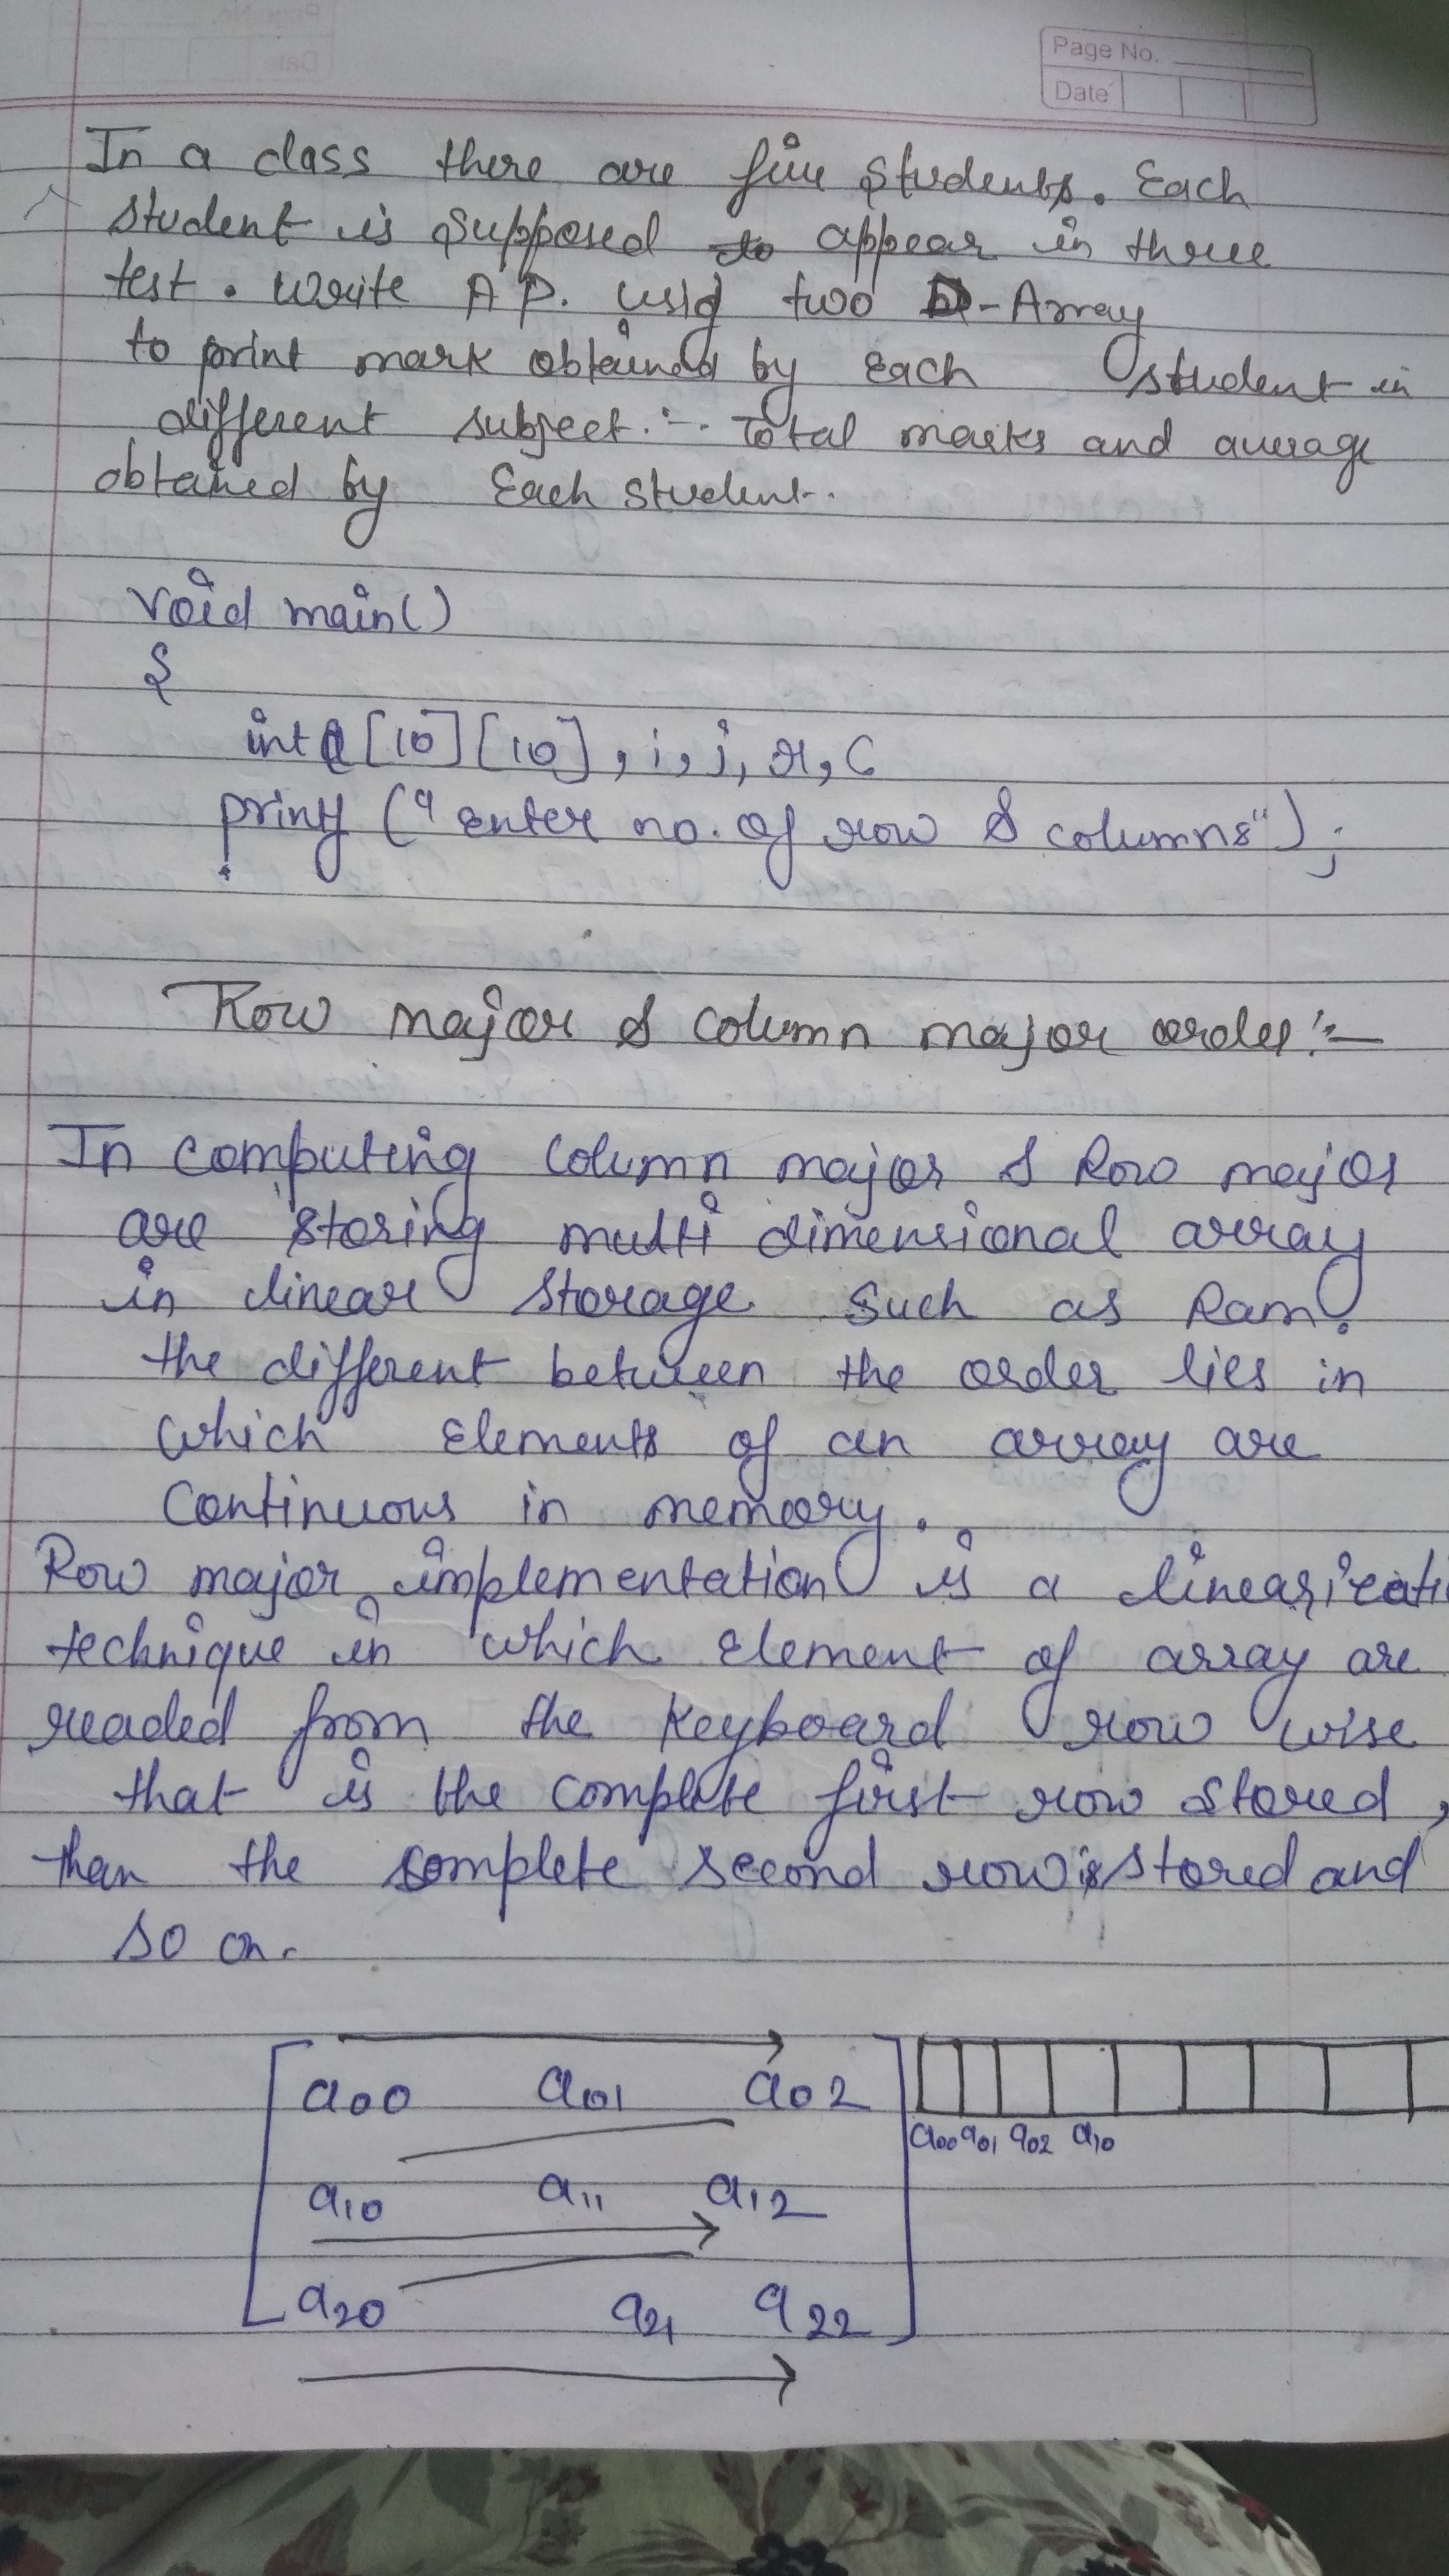 Page No.
Date
In a class there are five students. Each
student is supposed to appear in three
test. Write A P. usig two D-Array
to print mark obtained by each student in
different subject :- Total marks and average
obtained by Each student.
void main()
{
int a[10][10], i, j, r, c
printf ("enter no. of row & columns");
Row major & column major order :-
In computing column major & Row major
are storing multi dimensional array
in linear storage such as Ram.
the different between the order lies in
which elements of an array are
continuous in memory.
Row major implementation is a linearizati
technique in which element of array are
readed from the keyboard row wise
that is the complete first row stored,
then the complete second row is stored and
so on.
a00 a01 a02
a00 a01 a02 a10
a10 a11 a12
a20 a21 a22